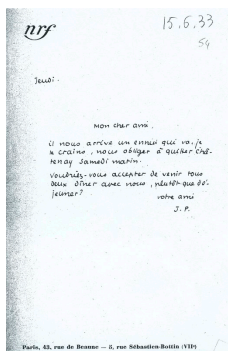 nrf
15.6.33
54
Jeudi.
Mon cher ami,
il nous arrive un ennui qui va, je
crains, nous obliger à quitter Châ-
tenay samedi matin.
Voudriez-vous accepter de venir tous
deux dîner avec nous, plutôt que dé-
jeuner?
votre ami
J. P.
Paris, 43, rue de Beaune — 5, rue Sébastien-Bottin (VIIe)